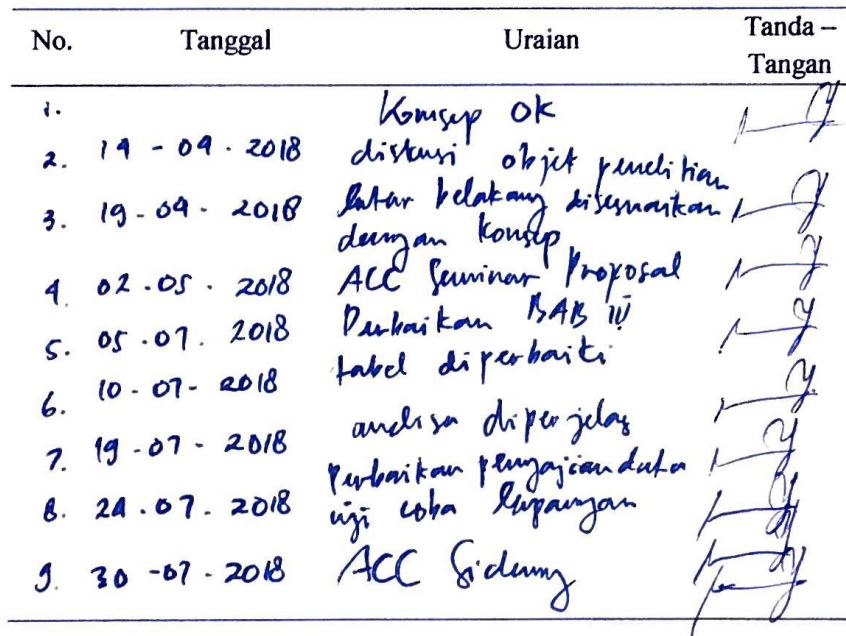 No. Tanggal Uraian Tanda – Tangan
1. Konsep OK
2. 19 - 04 - 2018 diskusi objek penelitian
3. 19 - 04 - 2018 latar belakang disesuaikan
dengan konsep
4. 02 . 05 . 2018 ACC Seminar Proposal
5. 05 . 07 . 2018 Perbaikan BAB IV
6. 10 - 07 - 2018 tabel diperbaiki
7. 19 - 07 - 2018 analisa diperjelas
perbaikan penyajian data
8. 24 . 07 . 2018 uji coba lapangan
9. 30 - 07 - 2018 ACC Sidang